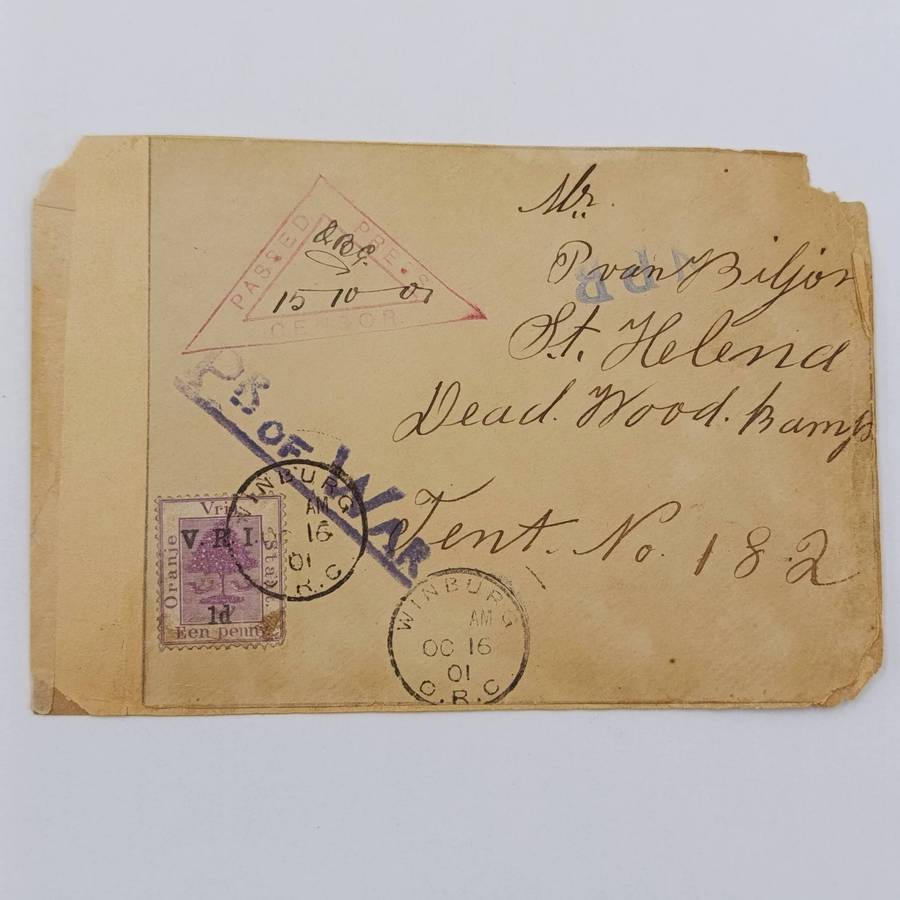 Mr.
P van Biljon
St. Helena
Dead. Wood. Kamp
Tent. No. 182
PASSED PRESS
CENSOR
15 10 01
PR OF WAR
WINBURG
AM
16
01
O.R.C
WINBURG
AM
OC 16
01
O.R.C.
Vrij
Oranje
Staat.
V.R.I.
1d
Een penny